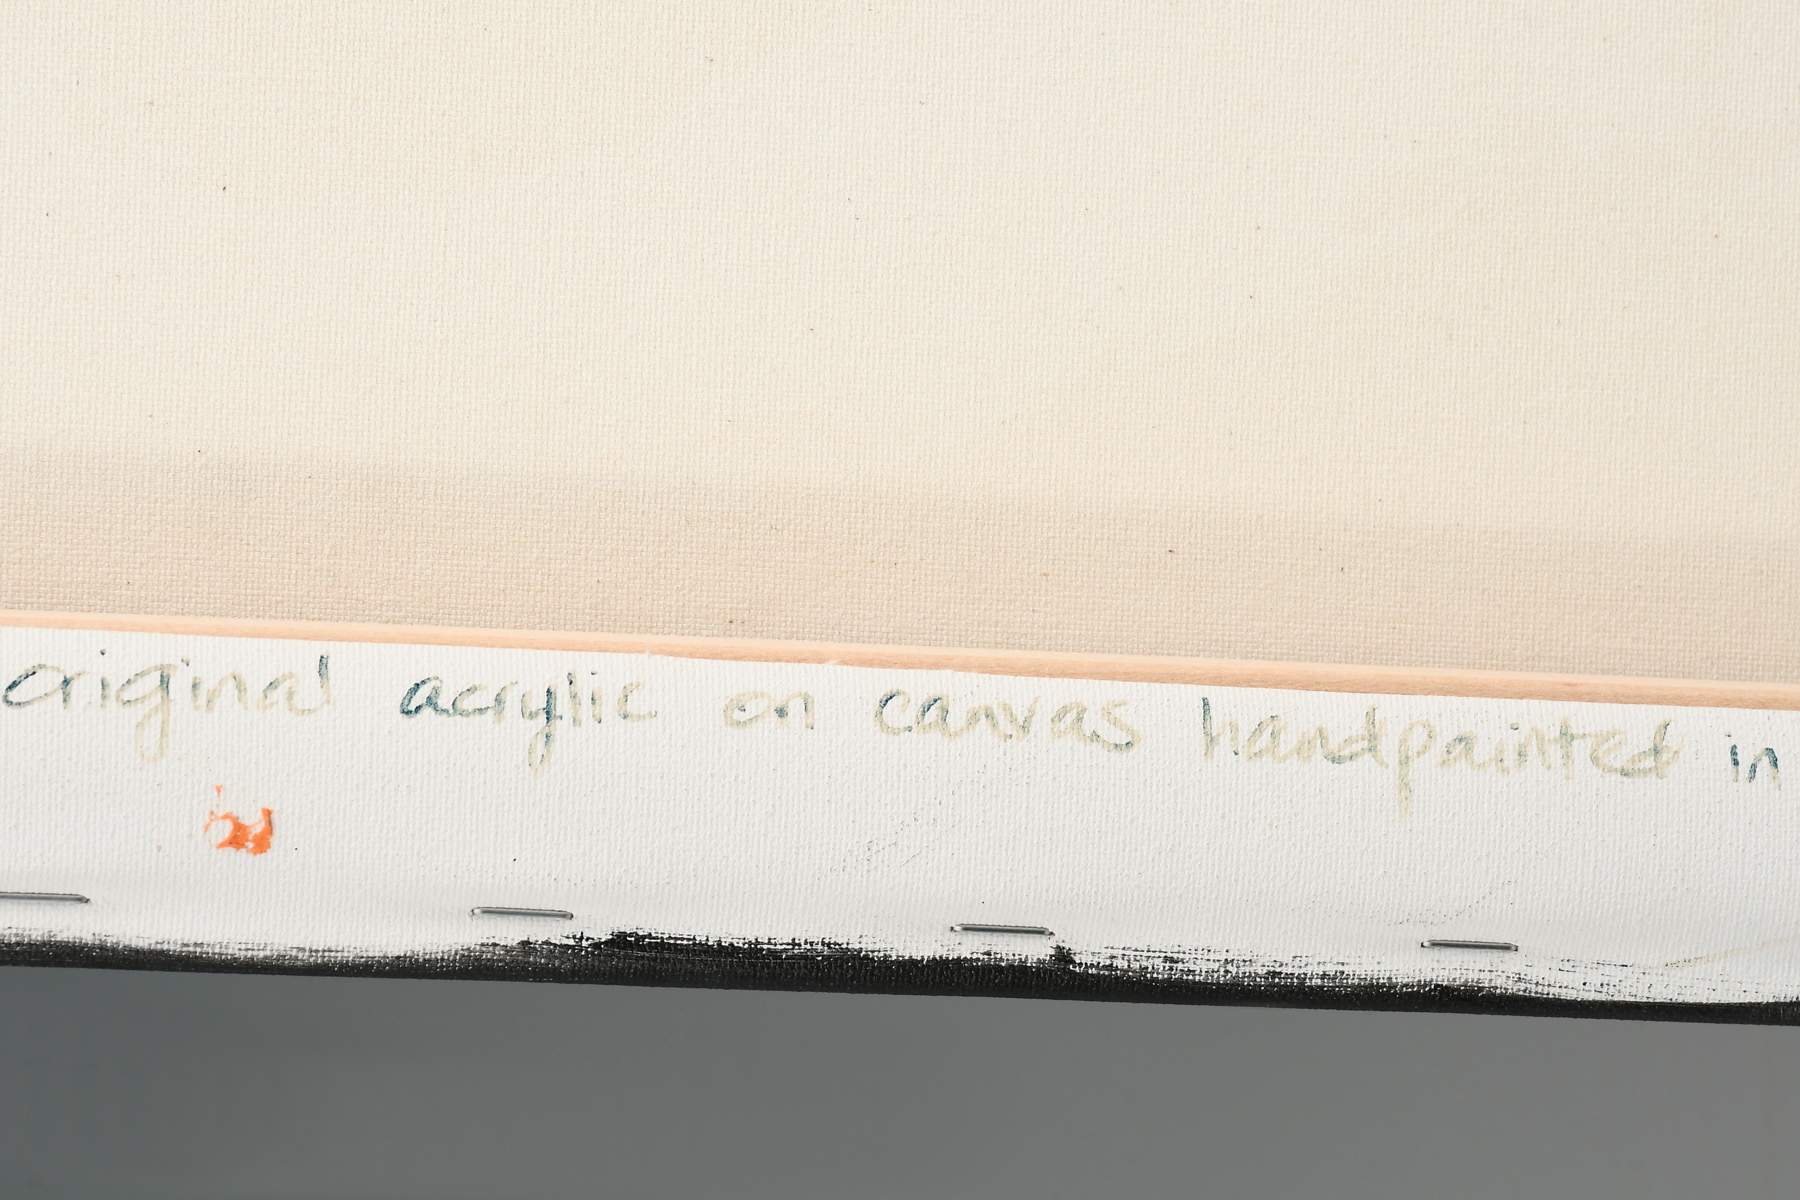 original acrylic on canvas handpainted in